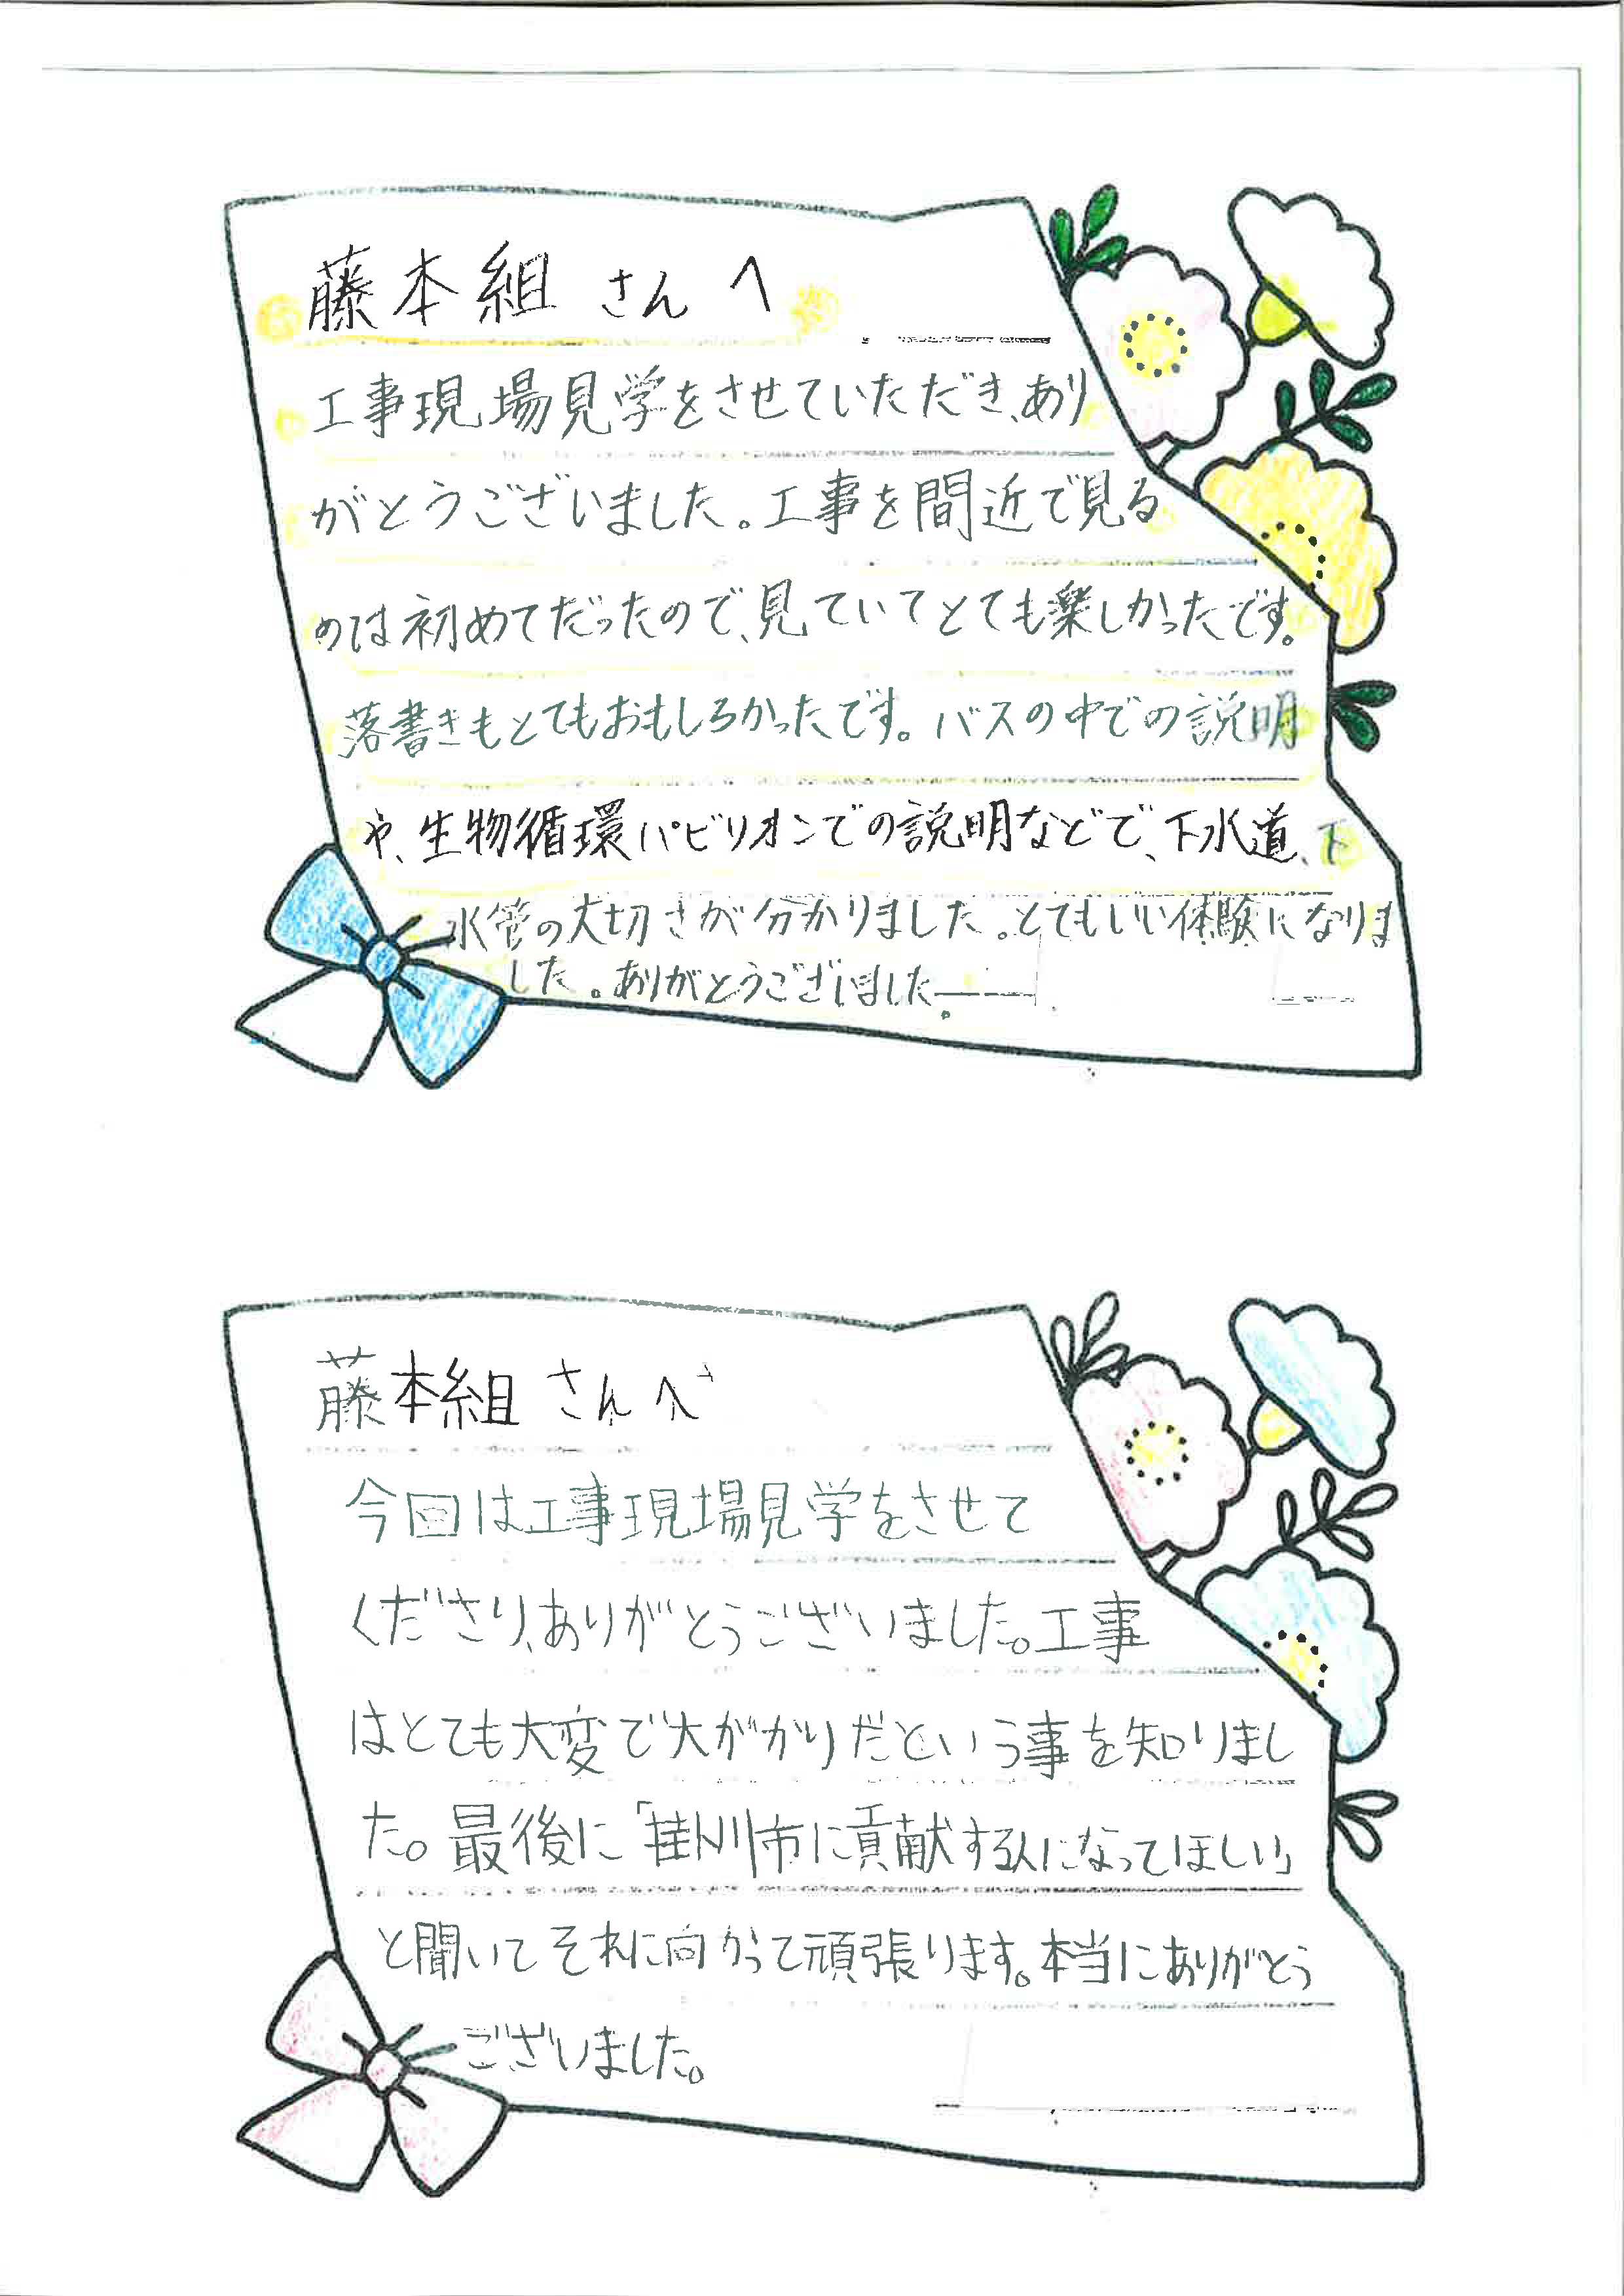 藤本組 さん へ
工事現場見学をさせていただき、あり
がとうございました。工事を間近で見る
のは初めてだったので、見ていてとても楽しかったです。
落書きもとてもおもしろかったです。バスの中での説明
や、生物循環パビリオンでの説明などで、下水道、下
水管の大切さが分かりました。とてもいい体験になりま
した。ありがとうございました。
藤本組 さんへ
今回は工事現場見学をさせて
くださり、ありがとうございました。工事
はとても大変で大がかりだという事を知りまし
た。最後に「掛川市に貢献する人になってほしい」
と聞いてそれに向かって頑張ります。本当にありがとう
ございました。